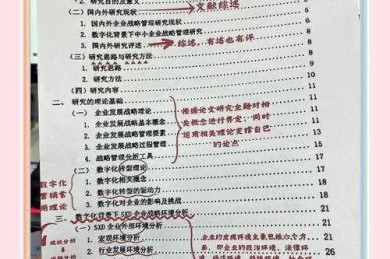 2. 研究目的及意义
（二）国内外研究现状 文献综述
1. 国内外企业战略管理研究现状 5
2. 数字化背景下中小企业战略管理研究 6
3. 国内外研究评述 综述，有述也有评 8
（三）研究思路与研究方法 8
1. 研究思路 8
2. 研究方法 9
（四）研究内容 10
二、研究的理论基础 11
（一）企业发展战略理论 11
1. 企业发展战略基本概念 11
2. 企业发展战略管理要素 11
3. 企业发展战略过程管理 13
4. 战略管理分析工具 15
根据论文研究主题对相
关概念进行界定，同时
运用相关理论支撑自己
的论点
（二）数字化转型理论 17
1. 数字化相关概念 17
2. 数字化转型的驱动力 18
3. 数字化对企业的影响及挑战 18
数字化
营销常
用理论
三、数字化背景下SXD企业战略环境分析 21
（一）SXD企业外部环境分析 21
1. 宏观环境分析 21
2. 行业发展环境分析 26
现状分析
企业的宏观环境主要包括六个方
面，即企业的政治环境、法律环